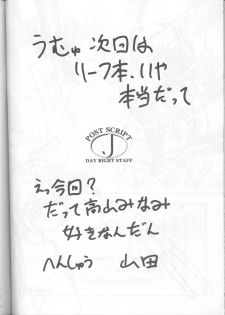 うむゅ 次回は
リーフ本、いや
本当だって
POST SCRIPT
J
DAY RIGHT STAFF
えっ今回？
だって高山みなみ
好きなんだん
へんしゅう 山田